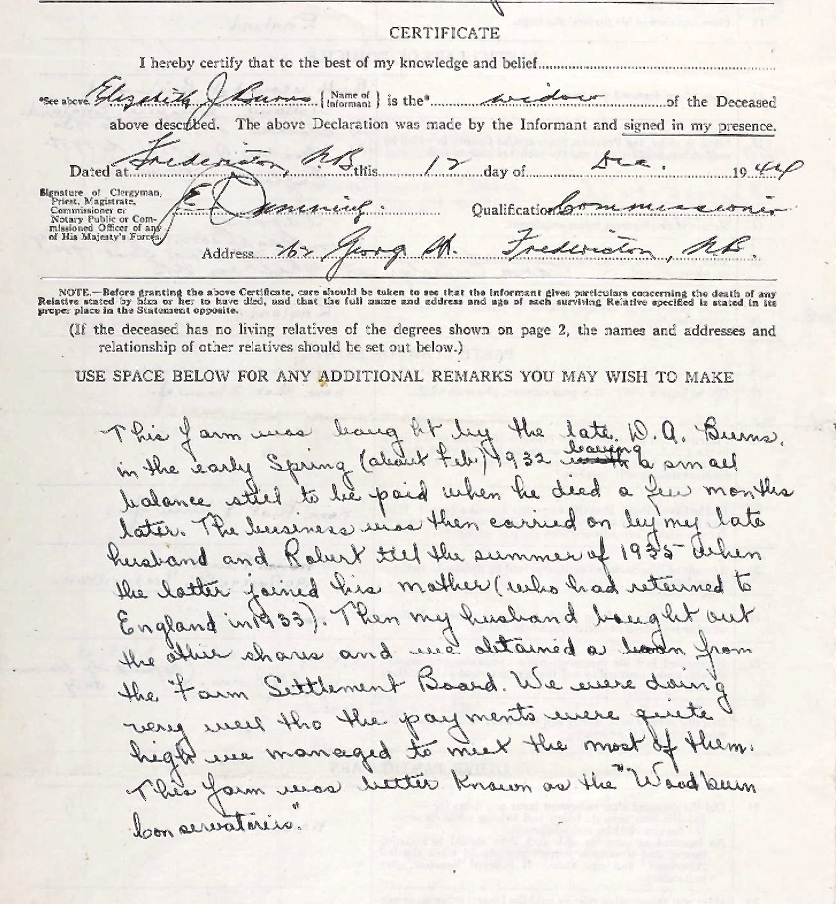 CERTIFICATE
I hereby certify that to the best of my knowledge and belief
*See above. Elizabeth J Burns { Name of Informant } is the* widow of the Deceased
above described. The above Declaration was made by the Informant and signed in my presence.
Dated at Fredericton, N.B. this 12 day of Dec. 1944
Signature of Clergyman,
Priest, Magistrate,
Commissioner or
Notary Public or Com-
missioned Officer of any
of His Majesty's Forces
Qualification Commissioner
Address St. Fredericton, N.B.
NOTE.—Before granting the above Certificate, care should be taken to see that the informant gives particulars concerning the death of any
Relative stated by him or her to have died, and that the full name and address and age of each surviving Relative specified is stated in its
proper place in the Statement opposite.
(If the deceased has no living relatives of the degrees shown on page 2, the names and addresses and
relationship of other relatives should be set out below.)
USE SPACE BELOW FOR ANY ADDITIONAL REMARKS YOU MAY WISH TO MAKE
This farm was bought by the late D. A. Burns,
in the early Spring (about Feb) 1932 leaving a small
balance still to be paid when he died a few months
later. The business was then carried on by my late
husband and Robert till the summer of 1935 when
the latter joined his mother (who had returned to
England in 1933). Then my husband bought out
the other shares and we obtained a loan from
the Farm Settlement Board. We were doing
very well tho the payments were quite
high we managed to meet the most of them.
This farm was better known as the "Woodburn
Conservatories."